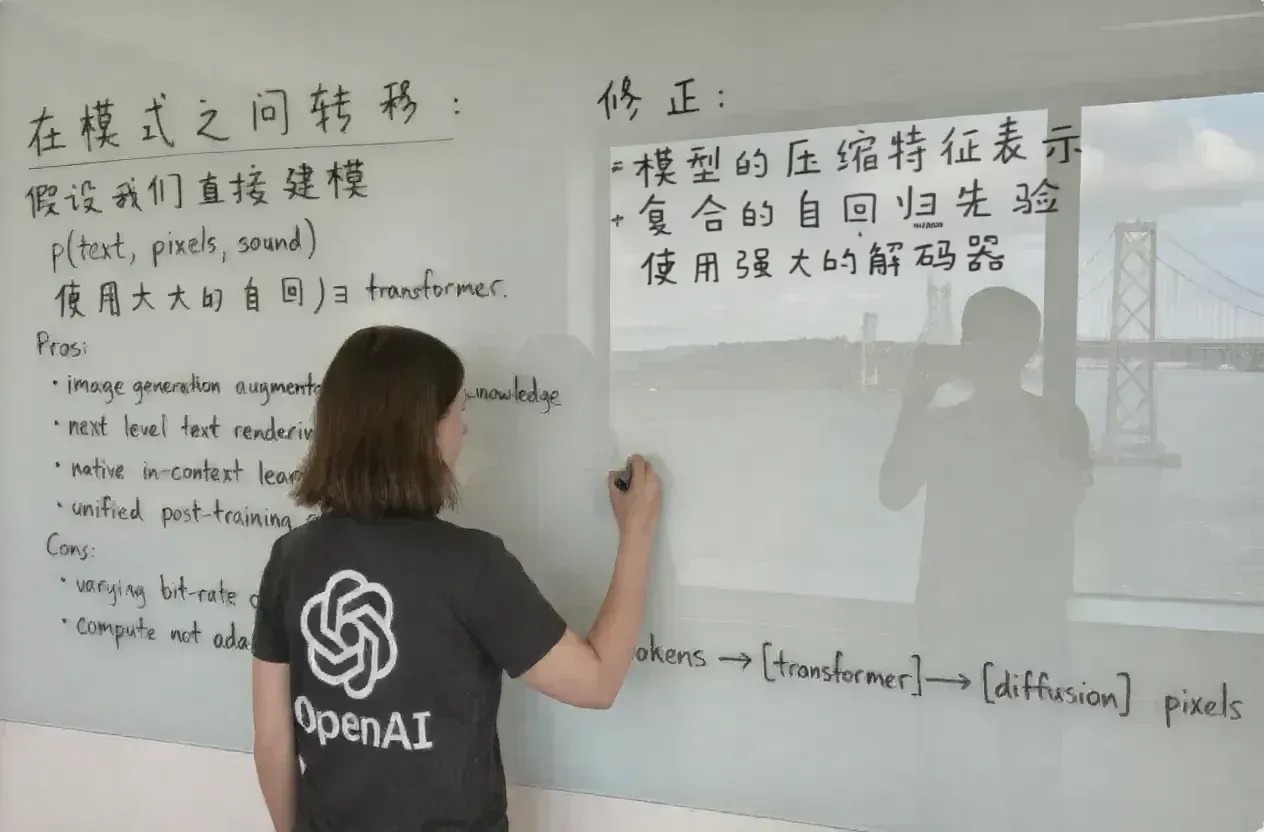 在模式之间转移:
假设我们直接建模
p(text, pixels, sound)
使用大大的自回归 transformer.
Pros:
• image generation augmente
knowledge
• next level text renderin
• native in-context lear
• unified post-training
Cons:
• varying bit-rate
• compute not ada
修正:
= 模型的压缩特征表示
+ 复合的自回归先验
使用强大的解码器
okens → [transformer] → [diffusion] pixels
OpenAI